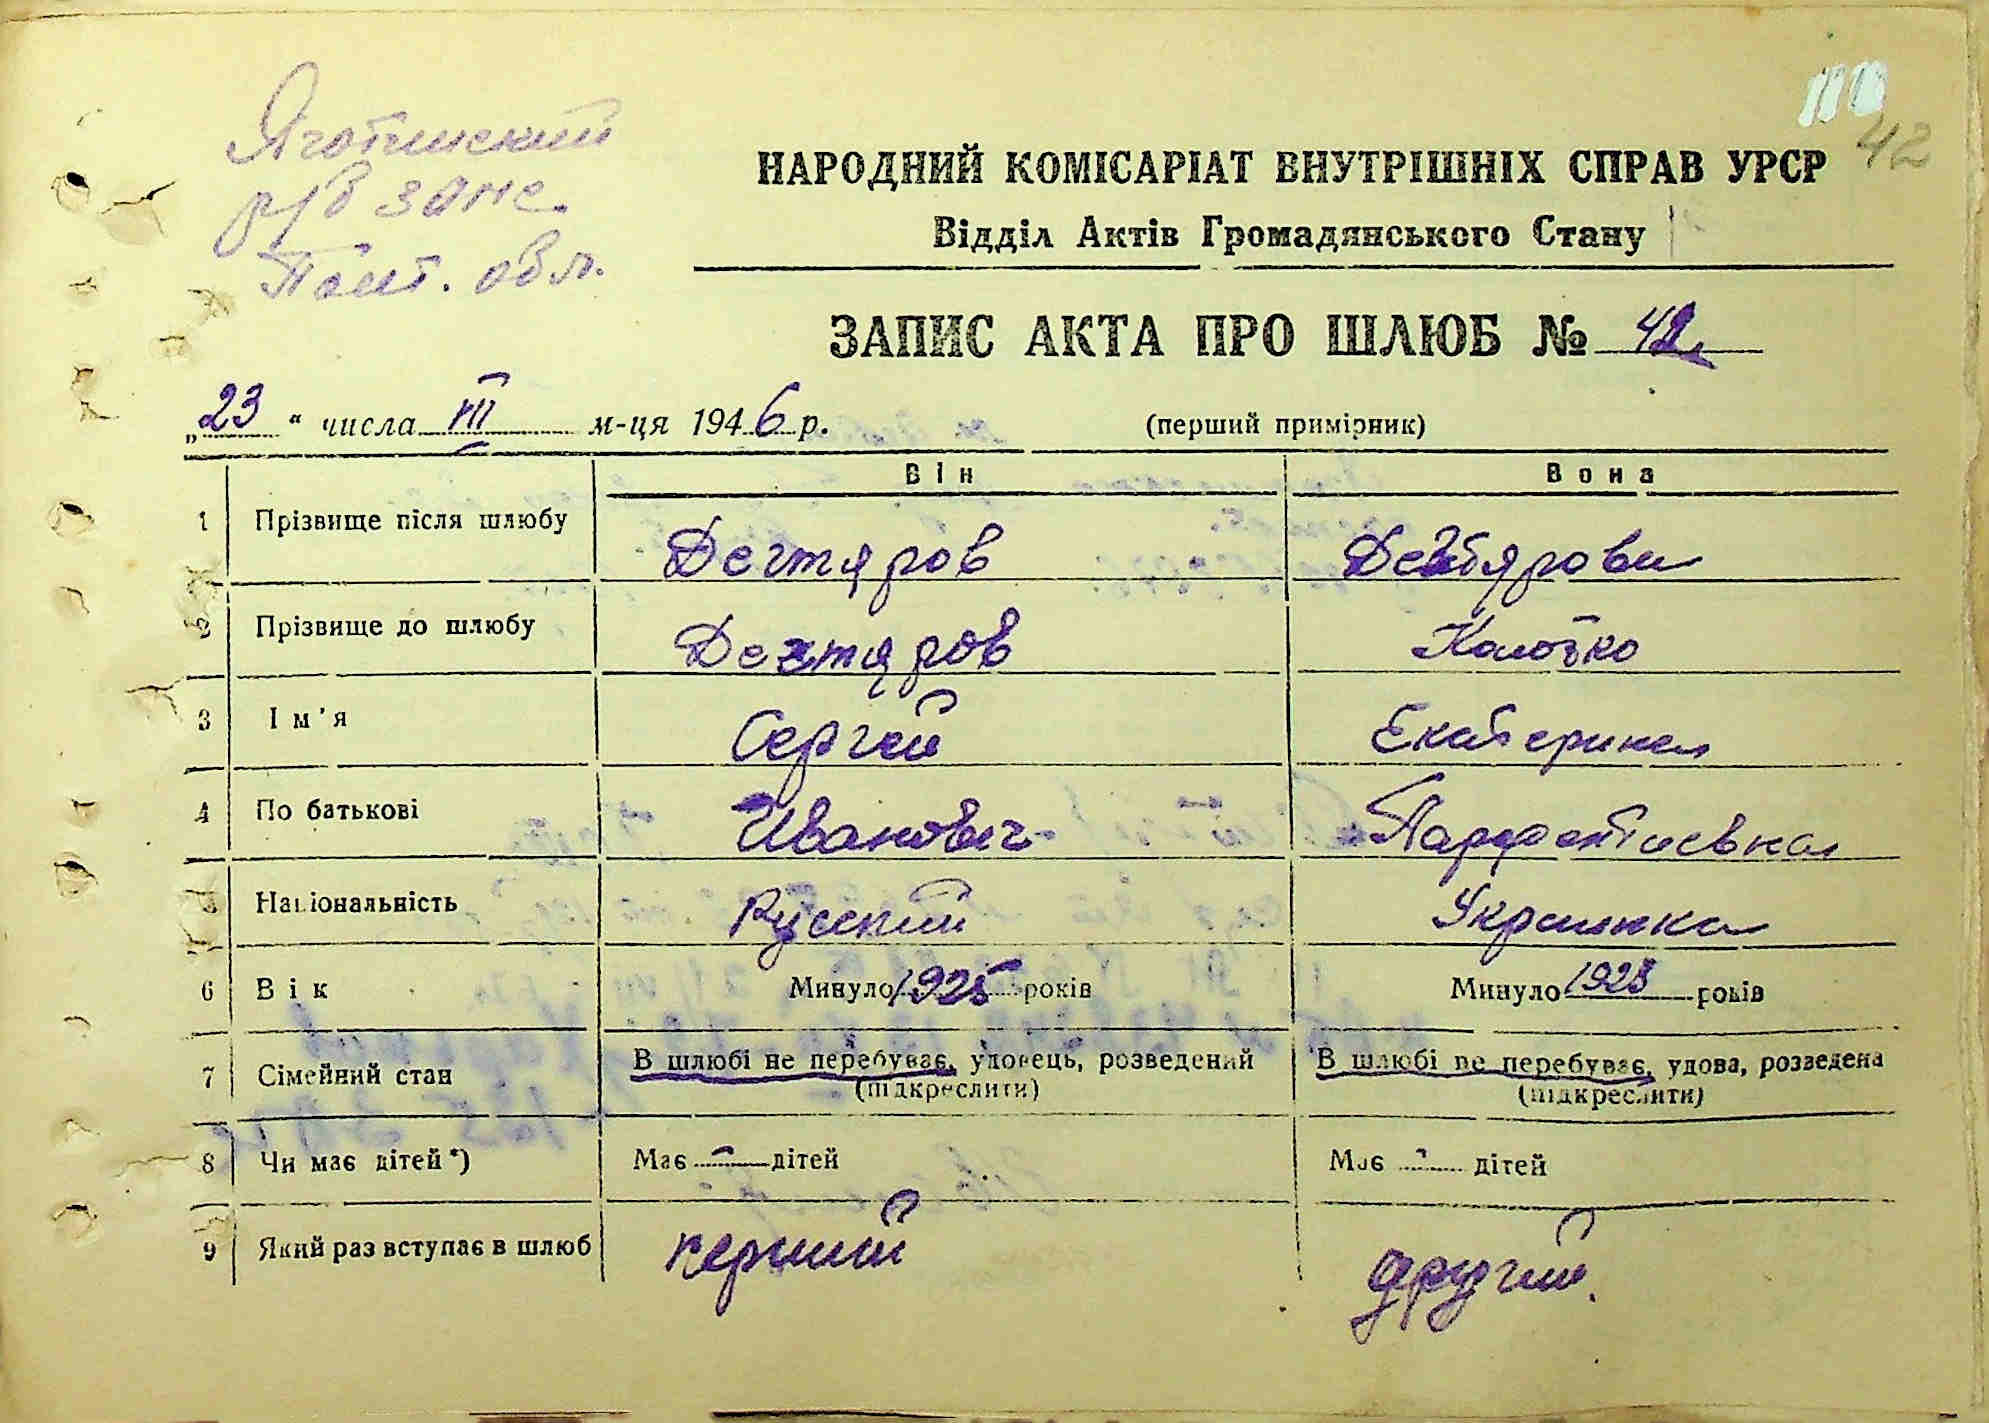 42
Яготинский
р/в загс
Полт. обл.
НАРОДНИЙ КОМІСАРІАТ ВНУТРІШНІХ СПРАВ УРСР
Відділ Актів Громадянського Стану
ЗАПИС АКТА ПРО ШЛЮБ № 42
„23“ числа VIII м-ця 1946 р. (перший примірник)
Він Вона
1 Прізвище після шлюбу Дегтяров Дегтярова
2 Прізвище до шлюбу Дегтяров
3 Ім'я Сергей Екатерина
4 По батькові Иванович Парфентиевна
Національність Русский Украинка
6 Вік Минуло 1925 років Минуло 1923 років
7 Сімейний стан В шлюбі не перебуває, удовець, розведений В шлюбі не перебуває, удова, розведена
(підкреслити) (підкреслити)
8 Чи має дітей*) Має - дітей Має - дітей
9 Який раз вступає в шлюб перший другий.